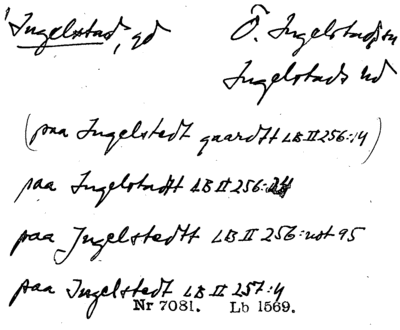 1 Ingelstad, gd Ö. Ingelstads sn
Ingelstads hd
(paa Ingelstedt gaardtt LB II 256:14)
paa Ingelstadtt LB II 256:
paa Jngelstedtt LB II 256: not 95
paa Ingelstedt LB II 257:4
Nr 7081. Lb 1569.